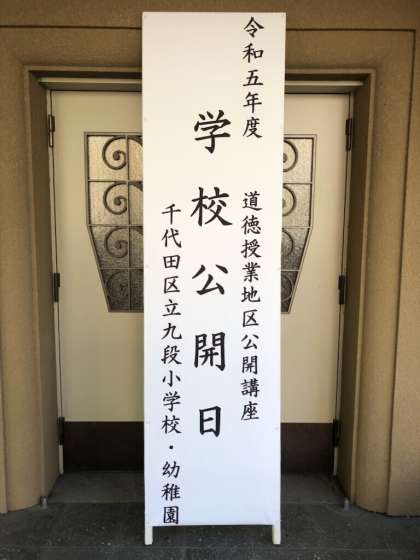 令和五年度　道徳授業地区公開講座
学校公開日
千代田区立九段小学校・幼稚園